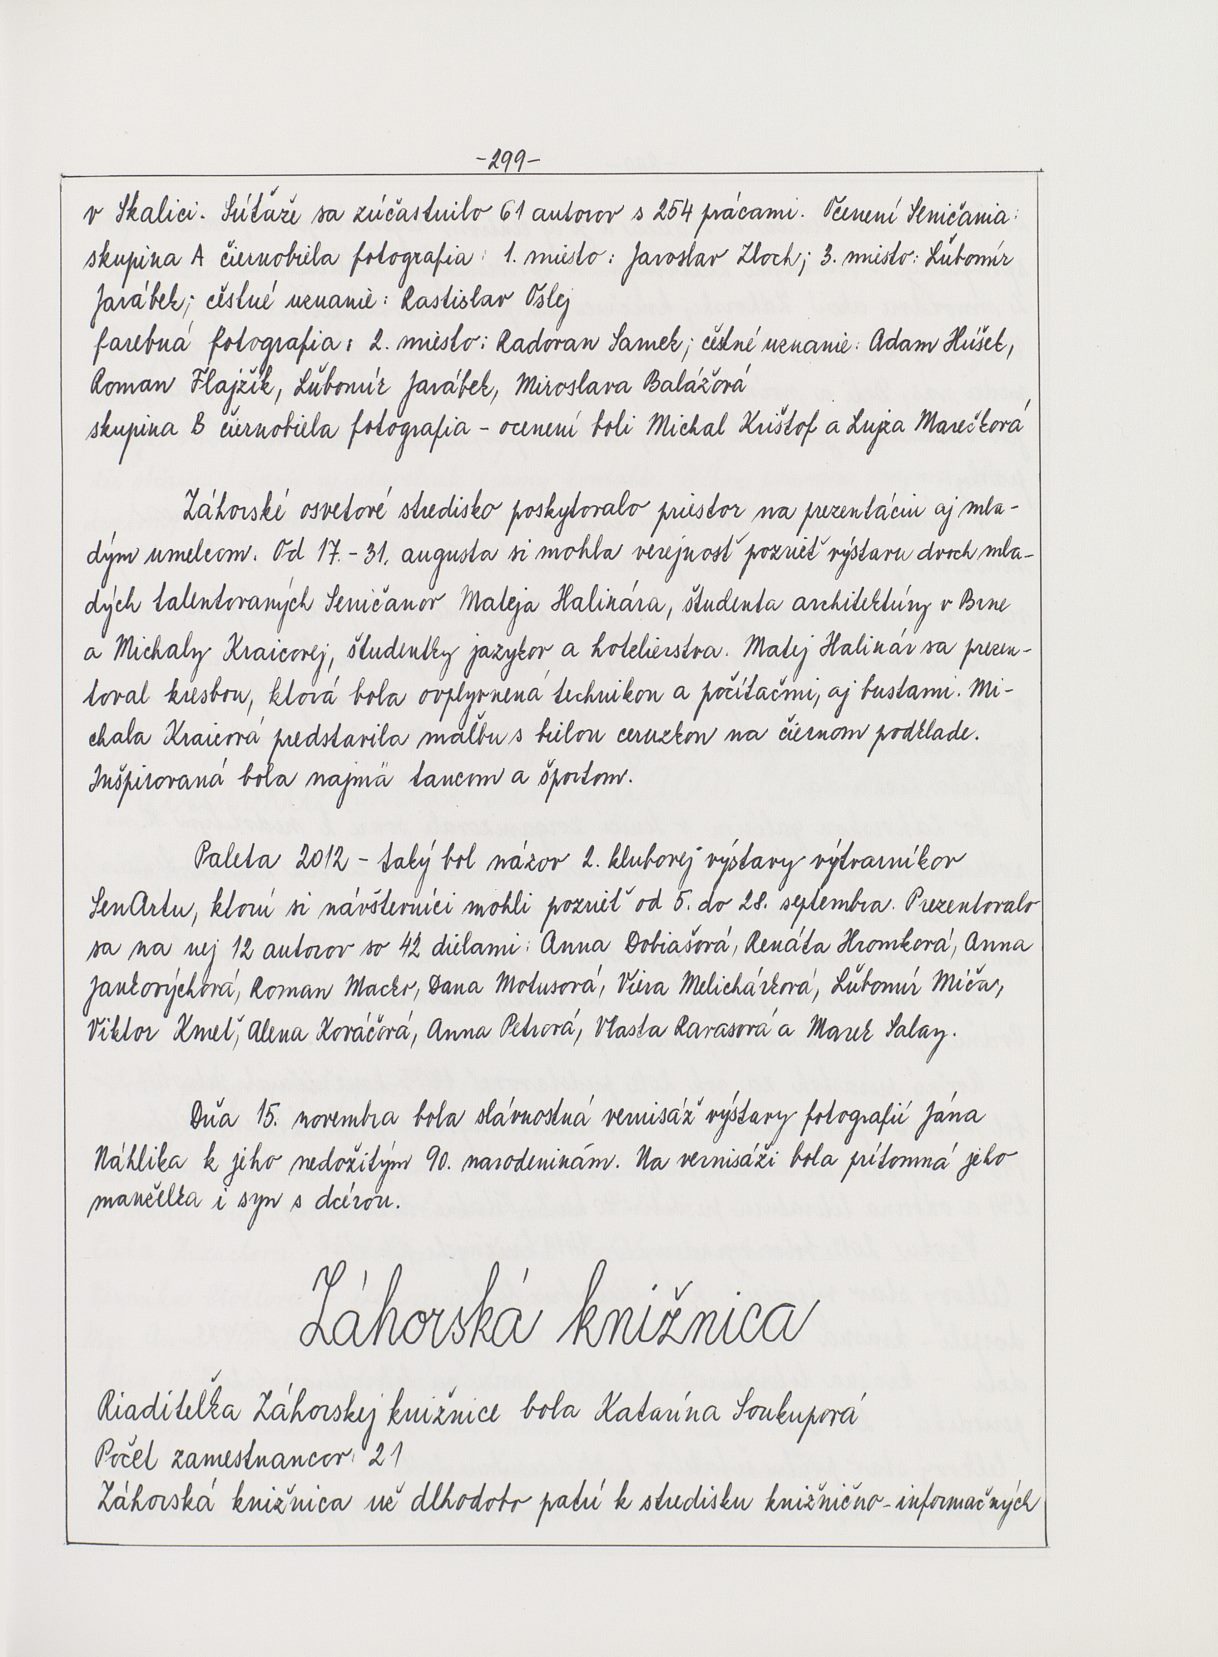 -299-
v Skalici. Súťaže sa zúčastnilo 61 autorov s 254 prácami. Ocenení Seničania:
skupina A čiernobiela fotografia: 1. miesto: Jaroslav Zloch; 3. miesto: Ľubomír
Jarábek; čestné uznanie: Rastislav Oslej
farebná fotografia: 2. miesto: Radovan Samek; čestné uznanie: Adam Húšek,
Roman Flajžík, Ľubomír Jarábek, Miroslava Balážová
skupina B čiernobiela fotografia - ocenení boli Michal Krištof a Lujza Marečková
Záhorské osvetové stredisko poskytovalo priestor na prezentáciu aj mla-
dým umelcom. Od 17.-31. augusta si mohla verejnosť pozrieť výstavu dvoch mla-
dých talentovaných Seničanov Mateja Halinára, študenta architektúry v Brne
a Michaly Kraicovej, študentky jazykov a hotelierstva. Matej Halinár sa prezen-
toval kresbou, ktorá bola ovplyvnená technikou a počítačmi, aj bustami. Mi-
chala Kraicová predstavila maľbu s bielou ceruzkou na čiernom podklade.
Inšpirovaná bola najmä tancom a športom.
Paleta 2012 - taký bol názov 2. klubovej výstavy výtvarníkov
SenArtu, ktorú si návštevníci mohli pozrieť od 5. do 28. septembra. Prezentovalo
sa na nej 12 autorov so 42 dielami: Anna Dobiašová, Renáta Hromková, Anna
Jankovýchová, Roman Macko, Dana Motusová, Viera Melichárková, Ľubomír Míča,
Viktor Kmeť, Alena Kováčová, Anna Petrová, Vlasta Ravasová a Marek Salay.
Dňa 15. novembra bola slávnostná vernisáž výstavy fotografií Jána
Náhlika k jeho nedožitým 90. narodeninám. Na vernisáži bola prítomná jeho
manželka i syn s dcérou.
Záhorská knižnica
Riaditeľka Záhorskej knižnice bola Katarína Soukupová
Počet zamestnancov: 21
Záhorská knižnica už dlhodobo patrí k stredisku knižnično-informačných